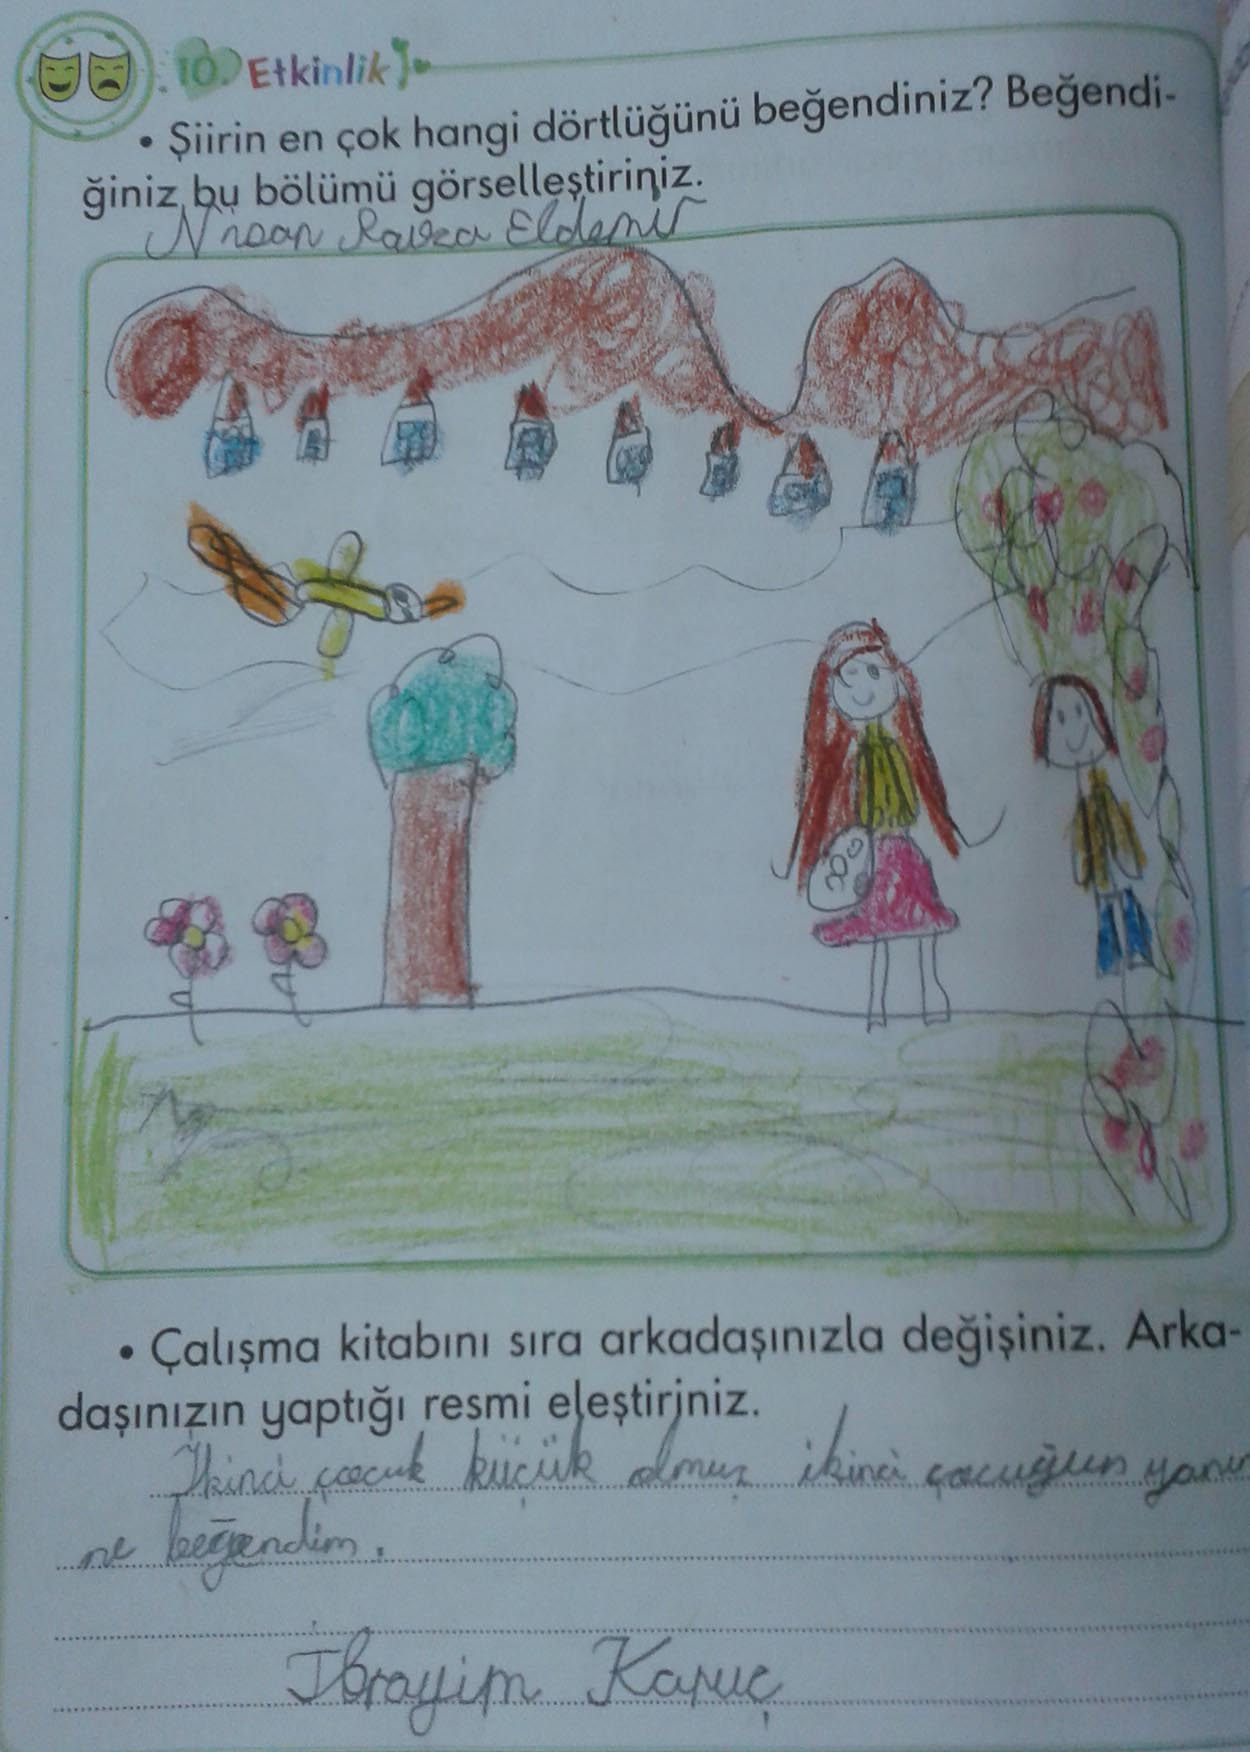 10. Etkinlik
• Şiirin en çok hangi dörtlüğünü beğendiniz? Beğendi-
ğiniz bu bölümü görselleştiriniz.
Nisan Ravza Eldemir
• Çalışma kitabını sıra arkadaşınızla değişiniz. Arka-
daşınızın yaptığı resmi eleştiriniz.
İkinci çocuk küçük olmuş ikinci çocuğun yanı
ne beğendim.
İbrayim Karuç